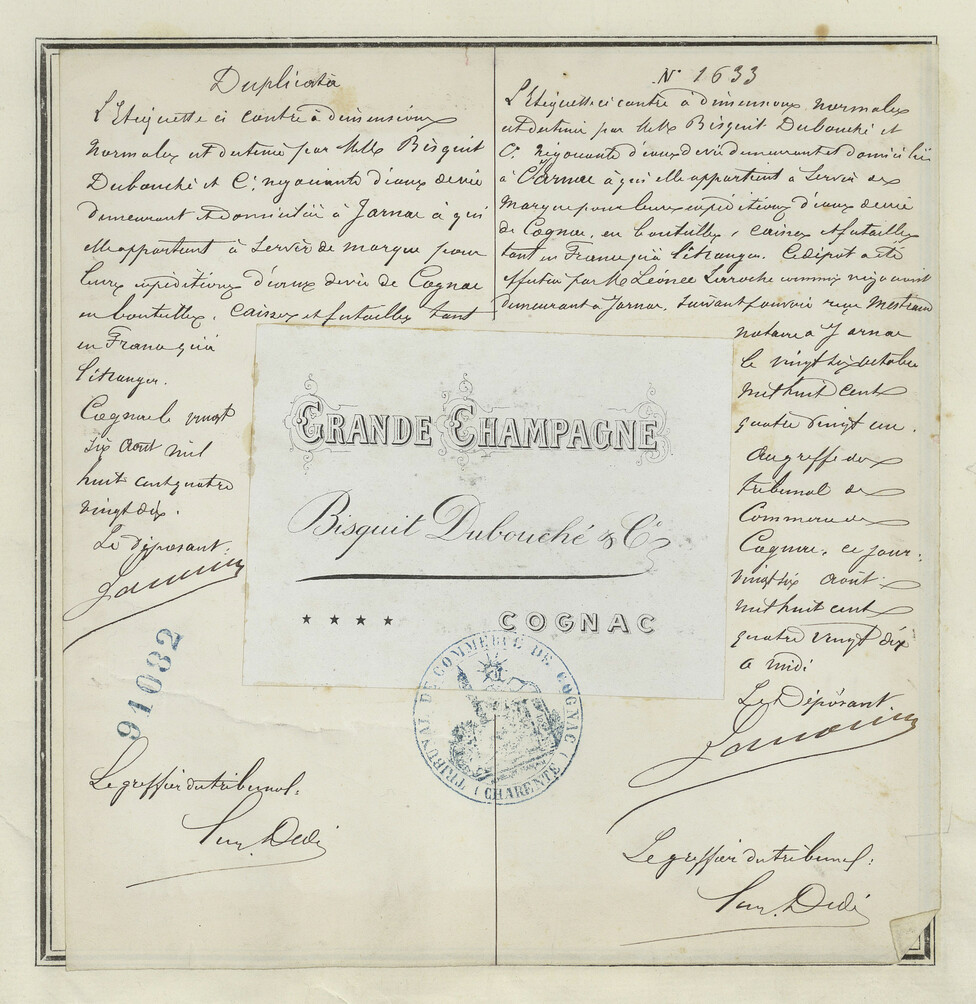 Duplicata
L'Etiquette ci contre à dimensions
normales est destinée par MM Bisquit
Dubouché et Cie négociants d'eaux de vie
demeurant et domiciliés à Jarnac à qui
elle appartient à servir de marque pour
leurs expéditions d'eaux de vie de Cognac
en bouteilles, caisses et futailles tant
en France qu'à
l'étranger.
Cognac le vingt
six Août mil
huit cent quatre
vingt dix.
Le déposant:
91082
Le greffier du tribunal:
N° 1633
L'Etiquette ci contre à dimensions normales
est destinée par MM Bisquit Dubouché et
Cie négociants d'eaux de vie demeurant et domiciliés
à Jarnac à qui elle appartient à servir de
marque pour leurs expéditions d'eaux de vie
de Cognac, en bouteilles, caisses et futailles
tant en France qu'à l'étranger. Ce dépôt a été
effectué par M Léonce Larroche commis négociant
demeurant à Jarnac, suivant pouvoir reçu
notaire à Jarnac
le vingt six octobre
mil huit cent
quatre vingt un.
Au greffe du
tribunal de
Commerce de
Cognac, ce jour:
vingt six Août
mil huit cent
quatre vingt dix
à midi
Le Déposant
Le greffier du tribunal:
GRANDE CHAMPAGNE
Bisquit Dubouché & Cie
★ ★ ★ ★ COGNAC
TRIBUNAL DE COMMERCE DE COGNAC (CHARENTE)